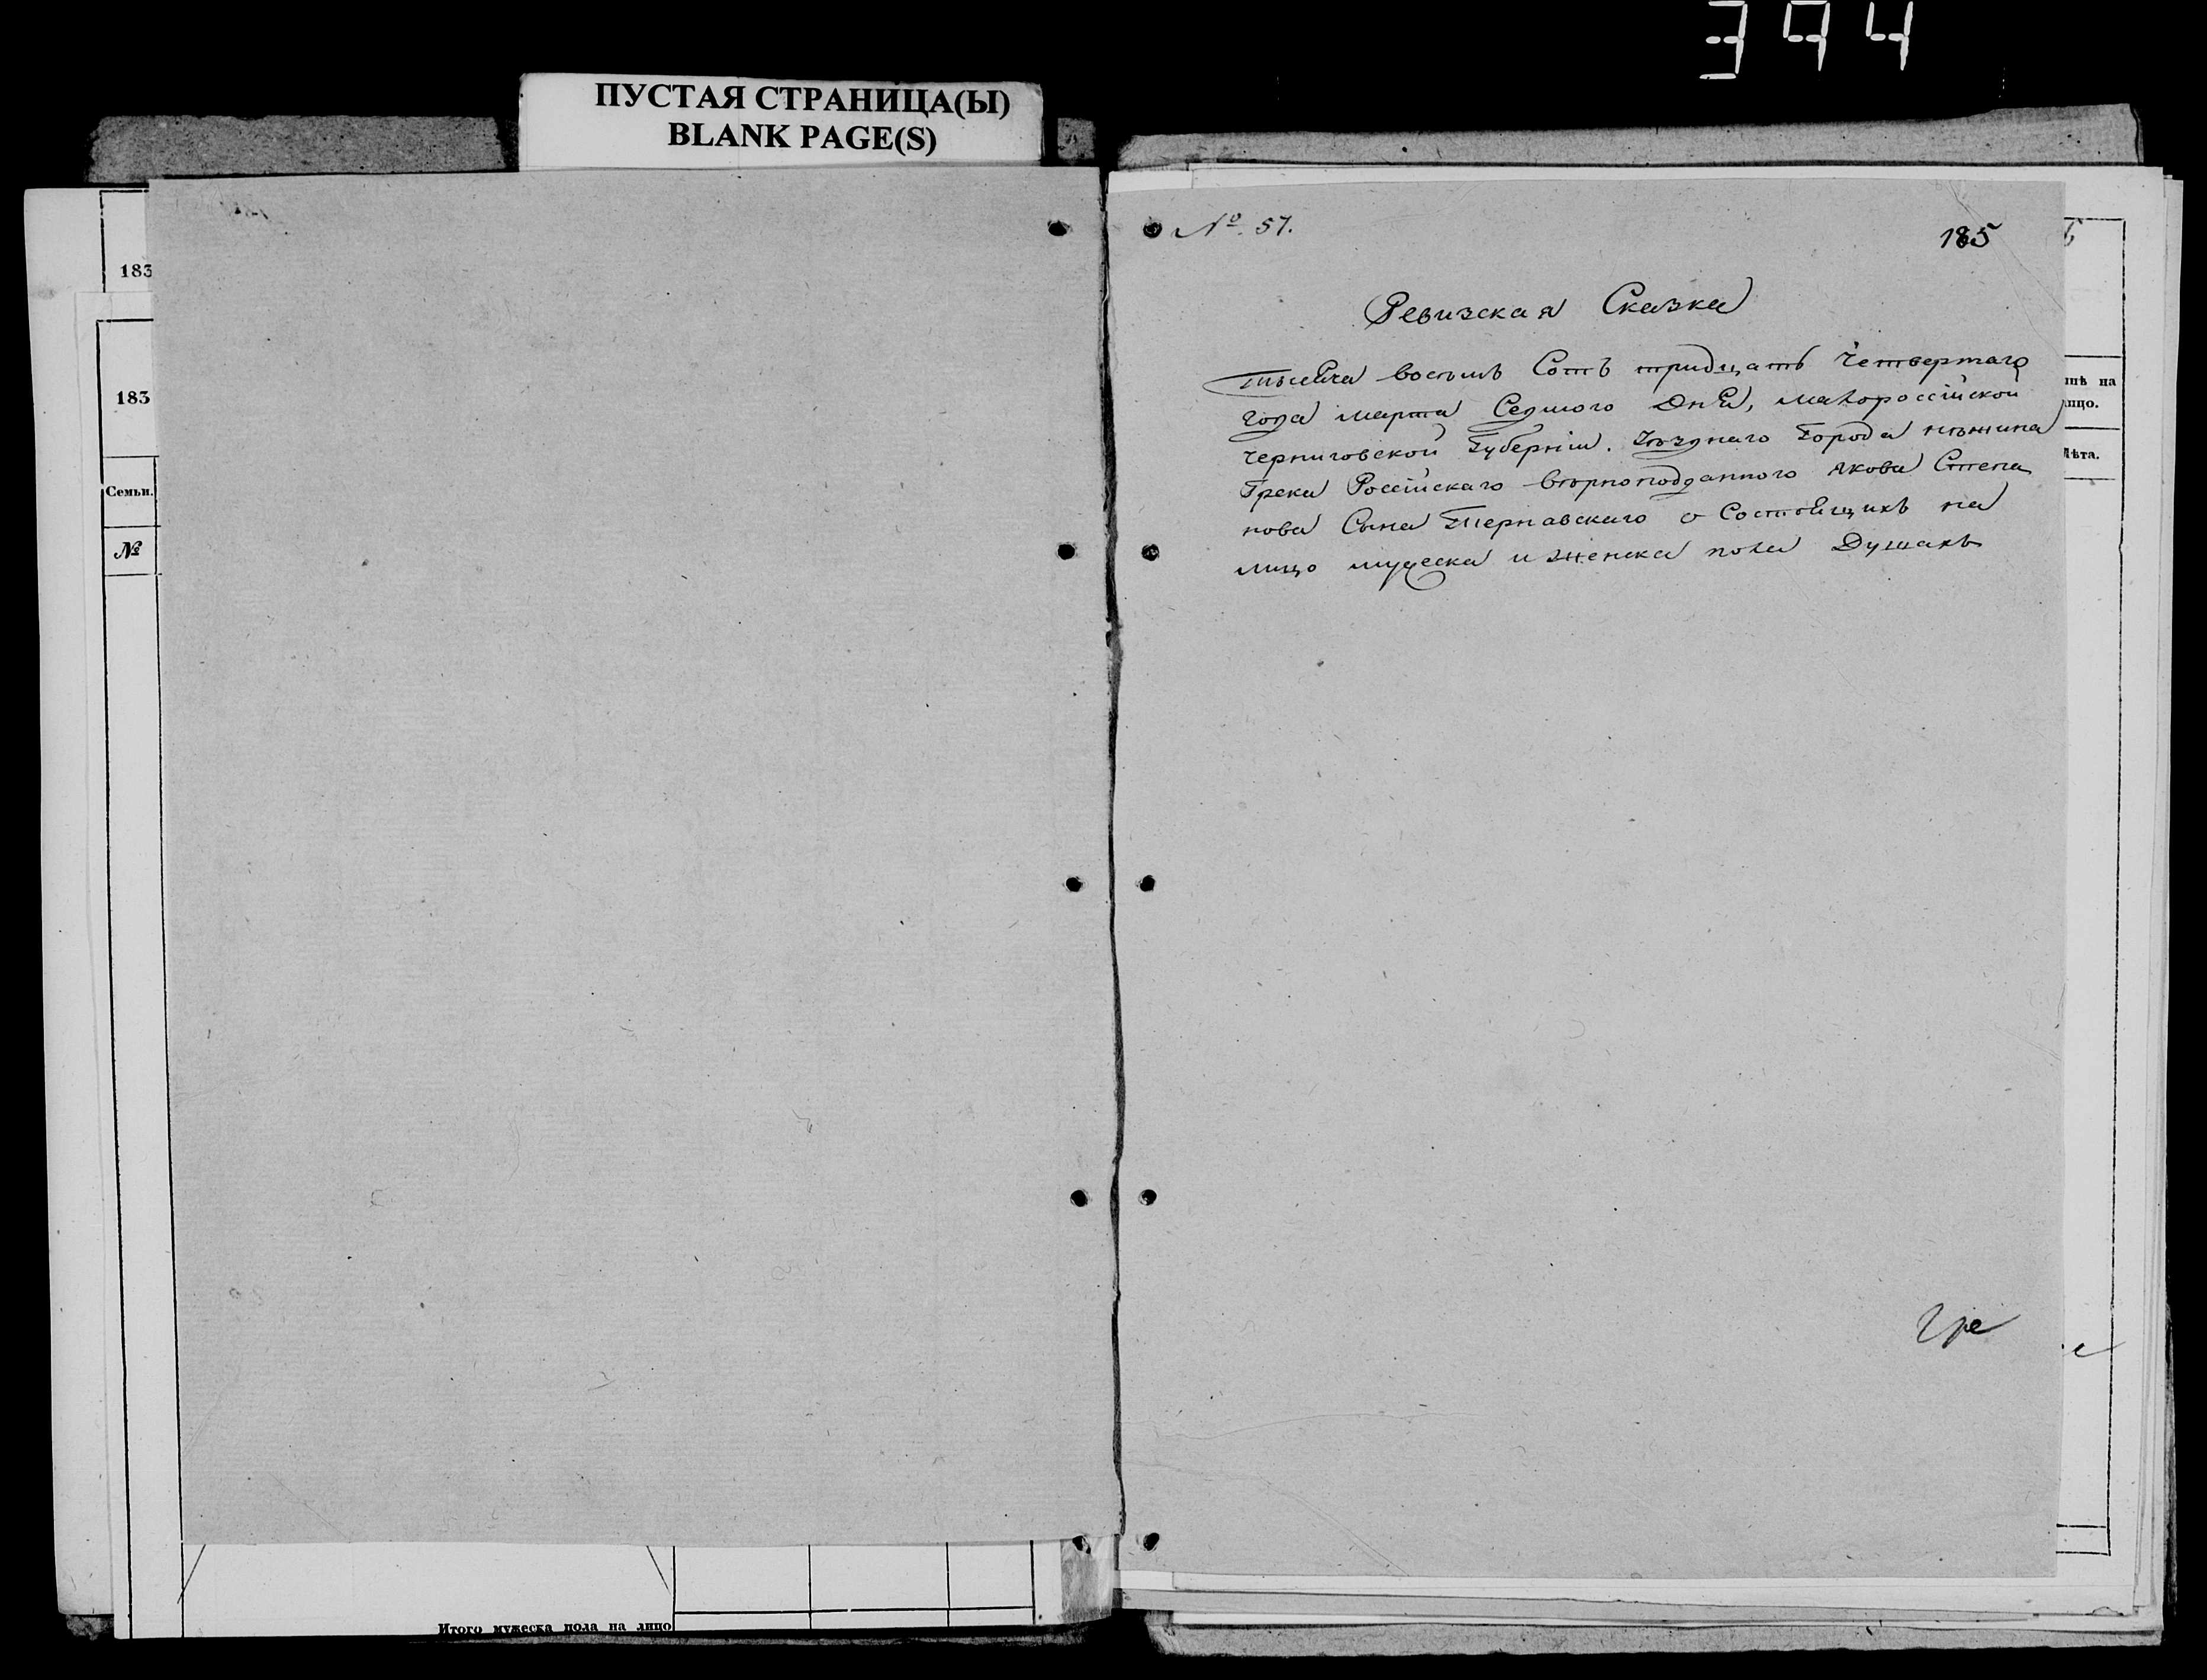 394
ПУСТАЯ СТРАНИЦА(Ы)
BLANK PAGE(S)
183
183
Семьи.
№
Итого мужеска пола на лицо
№. 57.
185
Ревизская Сказка
тысяча восемь Сотъ тридцать четвертаго
года марта Седмого Дня, малороссійской
черниговской Губерніи. Уѣзднаго Города нѣжина
Грека Россійскаго вѣрноподданного якова Степа
нова Сына Тернавскаго о Состоящихъ на
лицо мужеска и женска пола Душахъ
Гре
на
лицо.
Лѣта.